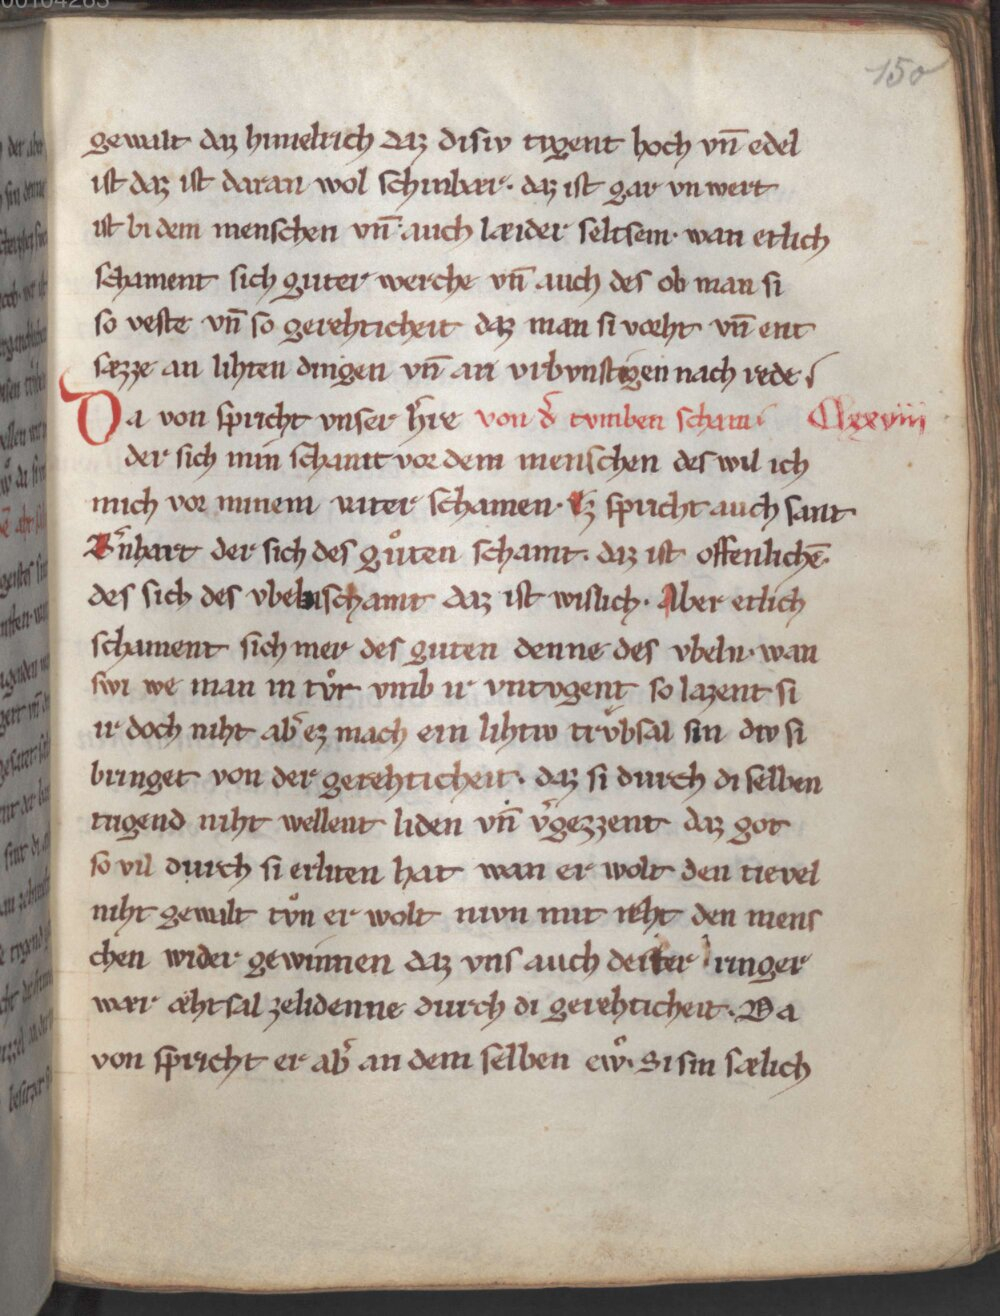 150
gewalt daz himelrich daz disiv tvgent hoch vn̄ edel
ist daz ist daran wol schinbær. daz ist gar vnwert
ist bi dem menschen vn̄ auch læider seltsem. wan etlich
schament sich guter werche vn̄ auch des ob man si
so veste vn̄ so gerehticheit daz man si væht vn̄ ent
sæzze an lihten dingen vn̄ an vrbvnstigen nach rede
Da von spricht vnser h̄re von d̾ tvmben scham Clxxviii
der sich min schamt vor dem menschen des wil ich
mich vor minem vater schamen. Ez spricht auch sant
B̾nhart der sich des gůten schamt. daz ist offenlichē.
des sich des vbeln schamt daz ist wislich. Aber etlich
schament sich mer des guten denne des vbeln. wan
swi we man in tůt vmb ir vntvgent so lazent si
ir doch niht ab̾ ez mach ein lihtiv trv̊bsal sin div si
bringet von der gerehticheit. daz si durch di selben
tugend niht wellent liden vn̄ v̾gezzent daz got
so vil durch si erliten hat wan er wolt den tievel
niht gewalt tůn er wolt nivn mit reht den mens
chen wider gewinnen daz vns auch dester ringer
wær æhtsal zelidenne durch di gerehticheit. Da
von spricht er ab̾ an dem selben eẘ. Si sin sælich